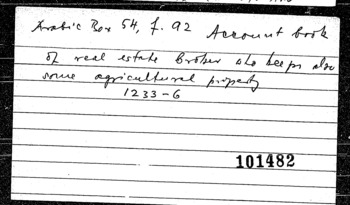 Arabic Box 54, f. 92 Account book
of real estate broker who keeps also
some agricultural property
1233-6
101482